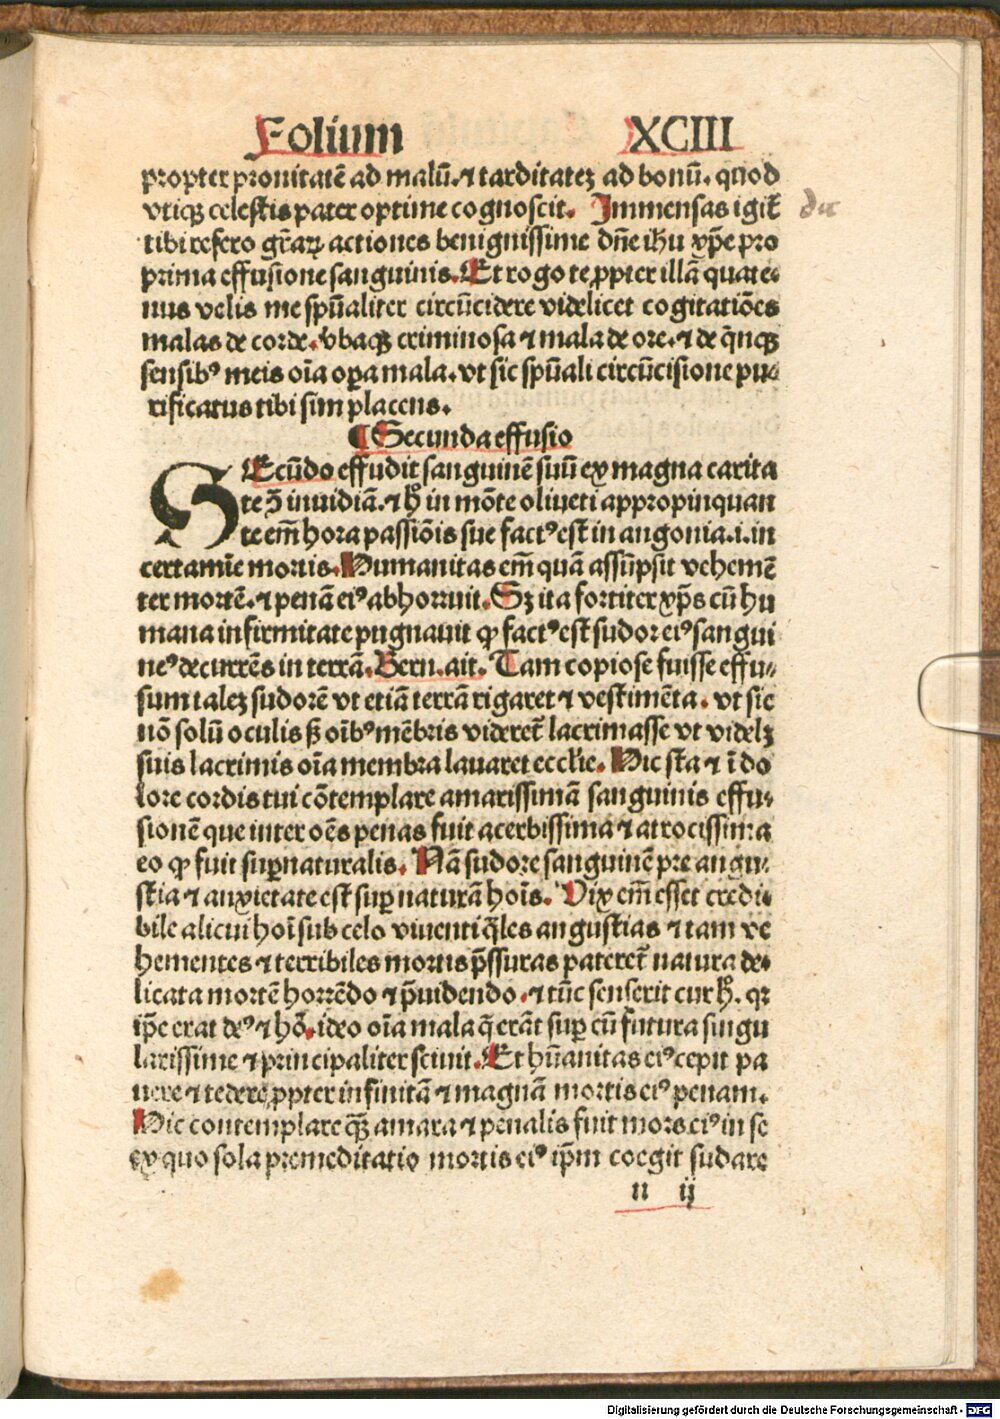 Folium XCIII
propter pronitatē ad malū. ⁊ tarditatez ad bonū. quod
vtiqꝫ celestis pater optime cognoscit. Immensas igit᷑
tibi refero gr̄aꝝ actiones benignissime dn̄e ih̄u xp̄e pro
prima effusione sanguinis. Et rogo te ꝓpter illā quate⸗
nus velis me spūaliter circūcidere videlicet cogitatiōes
malas de corde. vbaqꝫ criminosa ⁊ mala de ore. ⁊ de q̄nqꝫ
sensibꝰ meis oīa oꝑa mala. vt sic spūali circūcisione pu⸗
rificatus tibi sim placens.
¶ Secunda effusio
SEcūdo effudit sanguinē suū ex magna carita
te ↄ̄ inuidiā. ⁊ h̄ in mōte oliueti appropinquan
te em̄ hora passiōis sue factꝰ est in angonia .i. in
certamīe mortis. Humanitas em̄ quā assūpsit vehemē
ter mortē. ⁊ penā eiꝰ abhorruit. Sꝫ ita fortiter xp̄s cū hu
mana infirmitate pugnauit ꝙ factꝰ est sudor eiꝰ sangui
neꝰ decurrēs in terrā. Bern. ait. Tam copiose fuisse effu⸗
sum talez sudorē vt etiā terrā rigaret ⁊ vestimēta. vt sic
nō solū oculis ꝭ oībꝰ mēbris videret᷑ lacrimasse vt videlꝫ
suis lacrimis oīa membra lauaret eccl̄ie. Hic sta ⁊ ī do
lore cordis tui cōtemplare amarissimā sanguinis effu⸗
sionē que inter oēs penas fuit acerbissima ⁊ atrocissima
eo ꝙ fuit suꝑnaturalis. Nā sudore sanguinē pre angu⸗
stia ⁊ anxietate est suꝑ naturā hoīs. Vix em̄ esset credi⸗
bile alicui hoī sub celo viuenti q̄les angustias ⁊ tam ve
hementes ⁊ terribiles mortis p̄ssuras pateret᷑ natura de⸗
licata mortē horrēdo ⁊ p̄uidendo. ⁊ tūc senserit cur h̄. qꝛ
ip̄e erat deꝰ ⁊ hō. ideo oīa mala q̄ erāt suꝑ cū futura singu
larissime ⁊ principaliter sciuit. Et hūanitas eiꝰ cepit pa
uere ⁊ tedere ꝓpter infinitā ⁊ magnā mortis eiꝰ penam.
Hic contemplare qꝫ̄ amara ⁊ penalis fuit mors eiꝰ in se
ex quo sola premeditatio mortis eiꝰ ip̄m coegit sudare
n ij
Digitalisierung gefördert durch die Deutsche Forschungsgemeinschaft - DFG